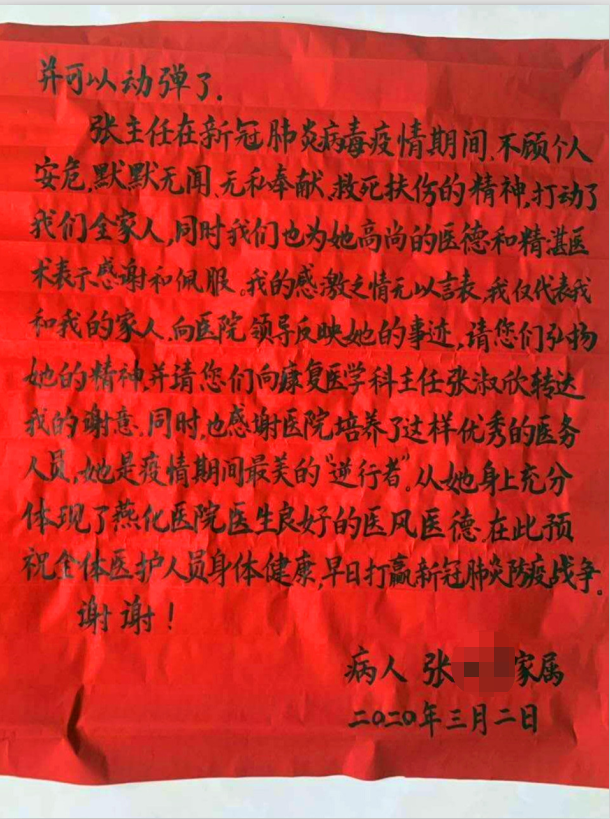 并可以动弹了.
张主任在新冠肺炎病毒疫情期间,不顾个人
安危,默默无闻、无私奉献、救死扶伤的精神,打动了
我们全家人,同时我们也为她高尚的医德和精湛医
术表示感谢和佩服。我的感激之情无以言表,我仅代表我
和我的家人,向医院领导反映她的事迹,请您们弘扬
她的精神,并请您们向康复医学科主任张淑欣转达
我的谢意.同时,也感谢医院培养了这样优秀的医务
人员,她是疫情期间最美的“逆行者”。从她身上充分
体现了燕化医院医生良好的医风医德.在此预
祝全体医护人员身体健康,早日打赢新冠肺炎防疫战争。
谢谢!
病人 张 家属
二〇二〇年三月二日